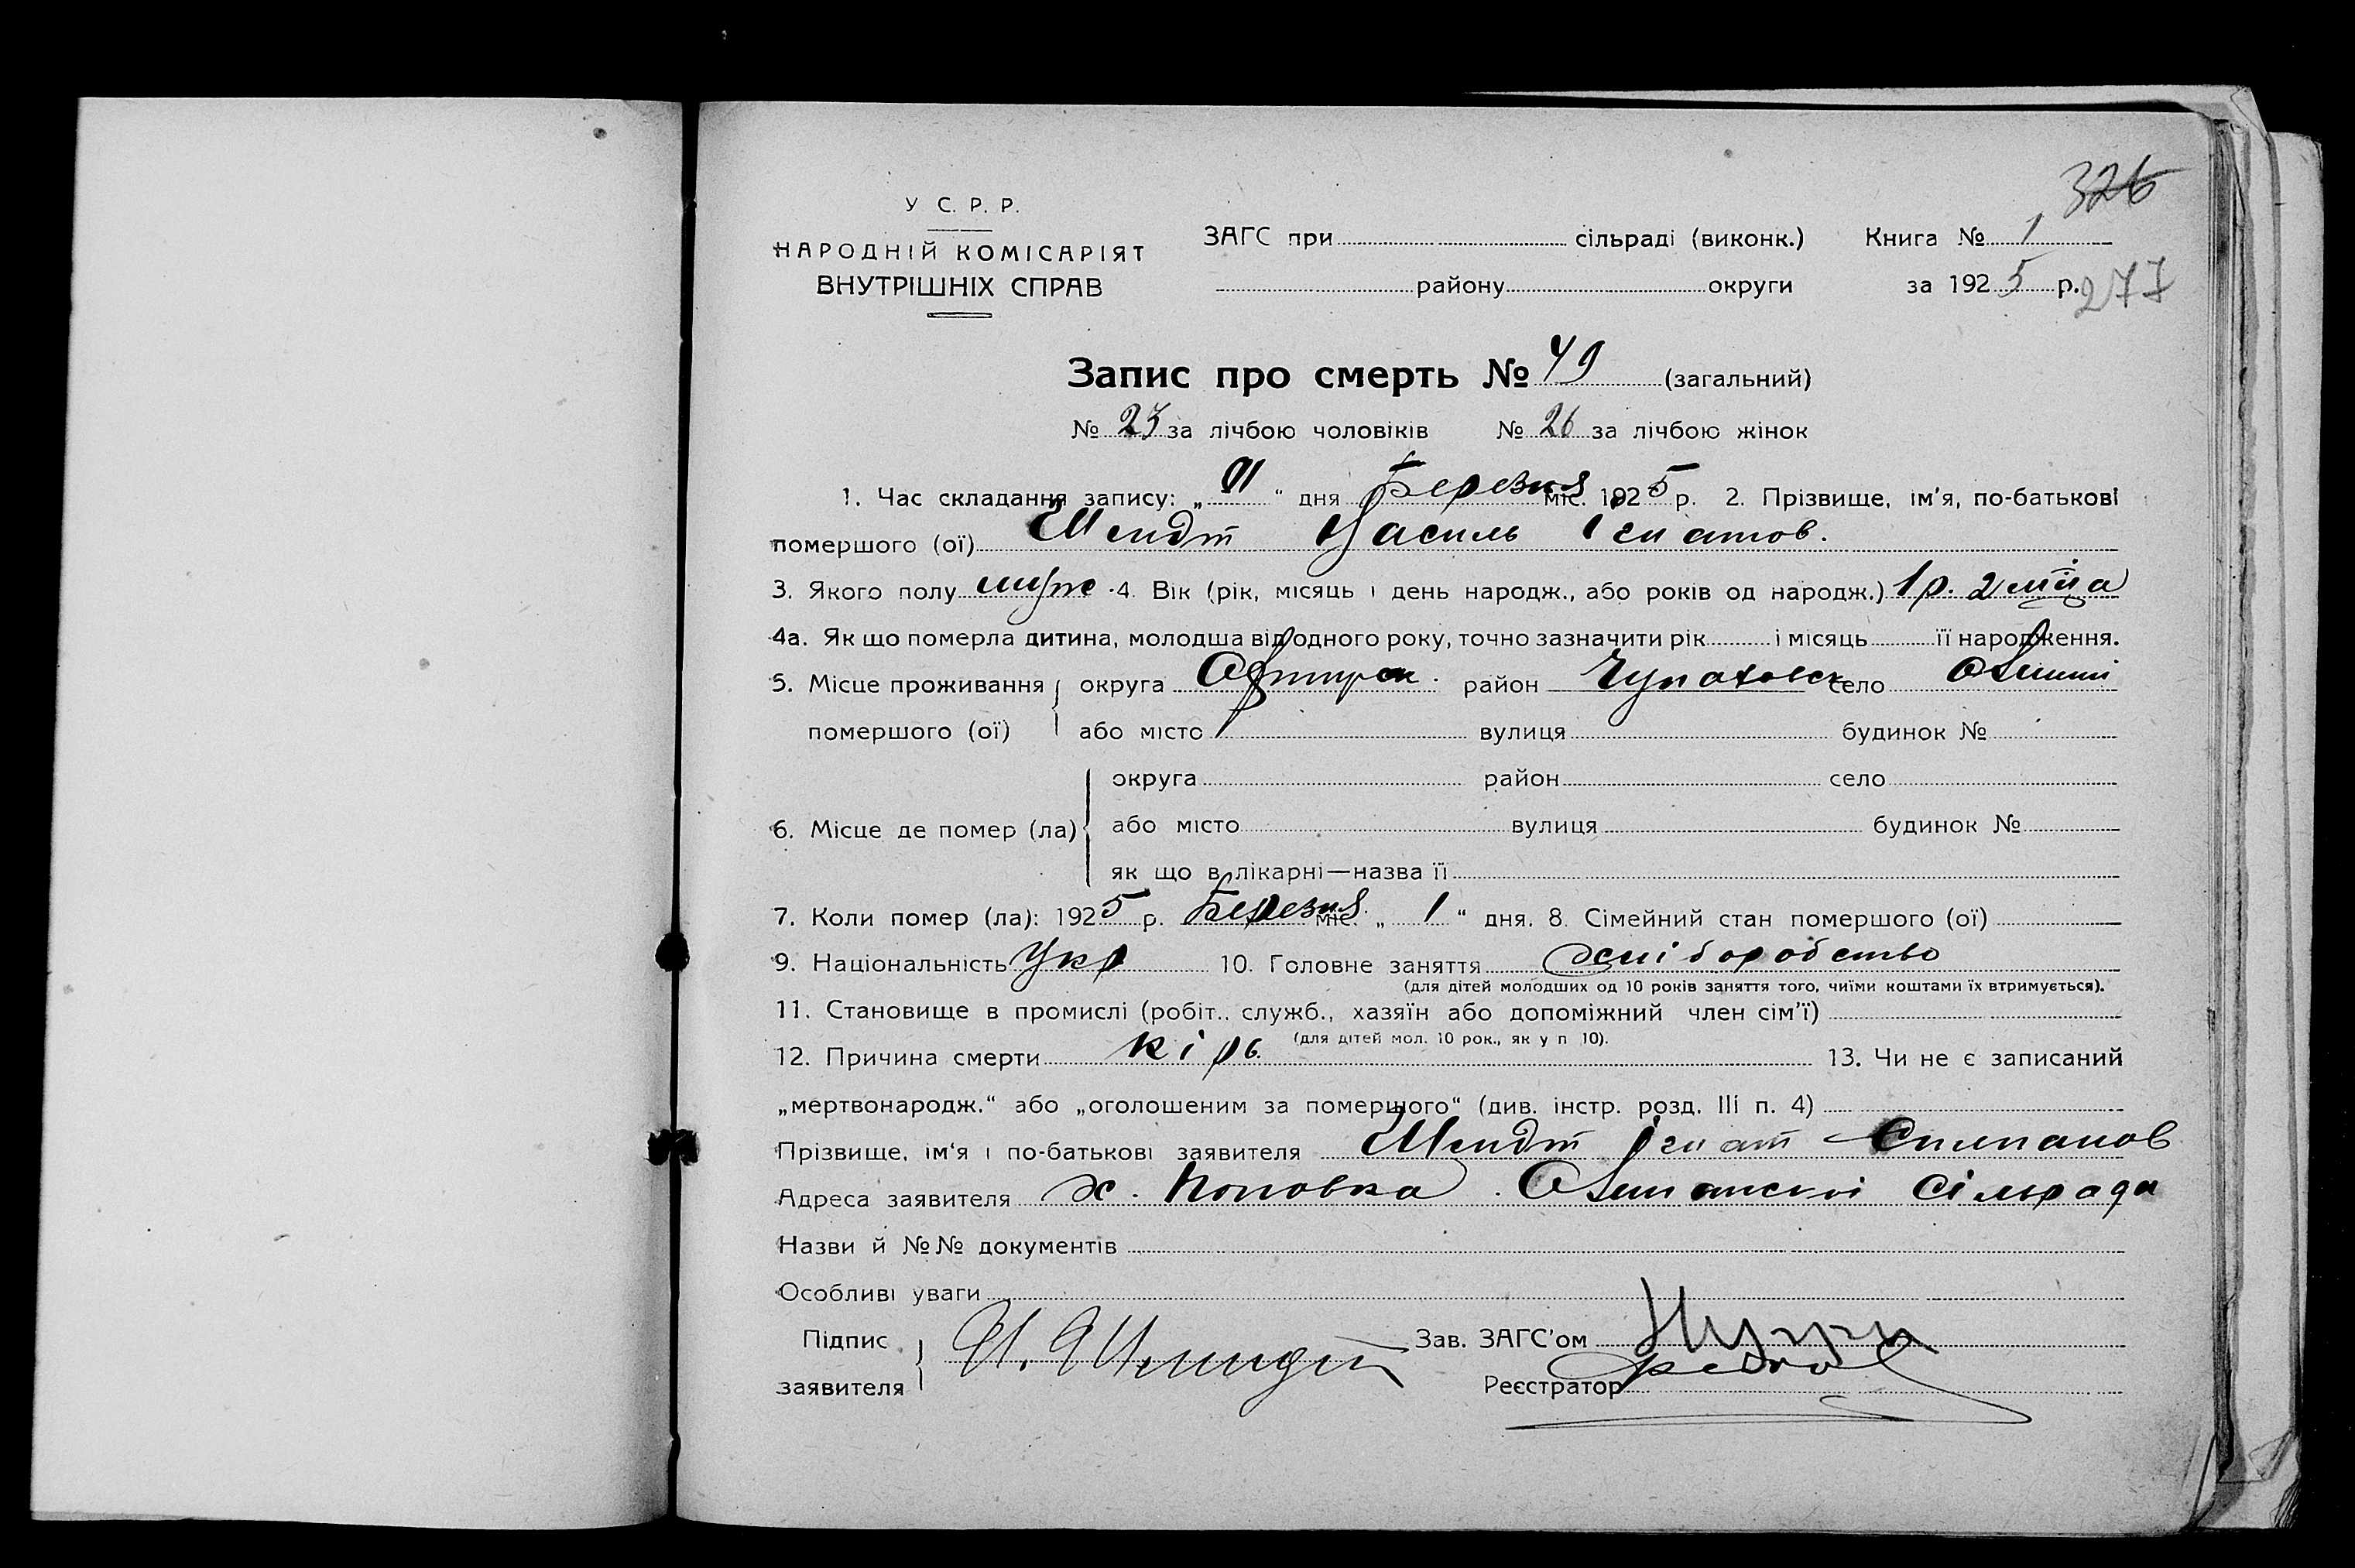 326
У С. Р. Р.
НАРОДНІЙ КОМІСАРІЯТ
ВНУТРІШНІХ СПРАВ
ЗАГС при сільраді (виконк.) Книга № 1
району округи за 1925 р. 277
Запис про смерть № 49 (загальний)
№ 23 за лічбою чоловіків № 26 за лічбою жінок
1. Час складання запису: „ “ дня Березня міс. 1925 р. 2. Прізвище, ім'я, по-батькові
помершого (ої) Шендт Василь Ігнатов.
3. Якого полу муж. 4. Вік (рік, місяць і день народж., або років од народж.) 1 р. 2 м-ца
4а. Як що померла дитина, молодша від одного року, точно зазначити рік і місяць її народження.
5. Місце проживання округа Охтирск. район Чупаховск село Олешні
помершого (ої) або місто вулиця будинок №
округа район село
6. Місце де помер (ла) або місто вулиця будинок №
як що в лікарні—назва її
7. Коли помер (ла): 1925 р. Березня міс. „ 1 “ дня. 8. Сімейний стан помершого (ої)
9. Національність Укр 10. Головне заняття хліборобство
(для дітей молодших од 10 років заняття того, чиїми коштами їх втримується).
11. Становище в промислі (робіт., служб., хазяїн або допоміжний член сім'ї)
(для дітей мол. 10 рок., як у п 10).
12. Причина смерти кірь. 13. Чи не є записаний
„мертвонародж.“ або „оголошеним за помершого“ (див. інстр. розд. III п. 4)
Прізвище, ім'я і по-батькові заявителя Шендт Ігнат Степанов
Адреса заявителя х. Поповка. Олешанскоі Сільради
Назви й №№ документів
Особливі уваги
Підпис Зав. ЗАГС'ом
заявителя Реєстратор